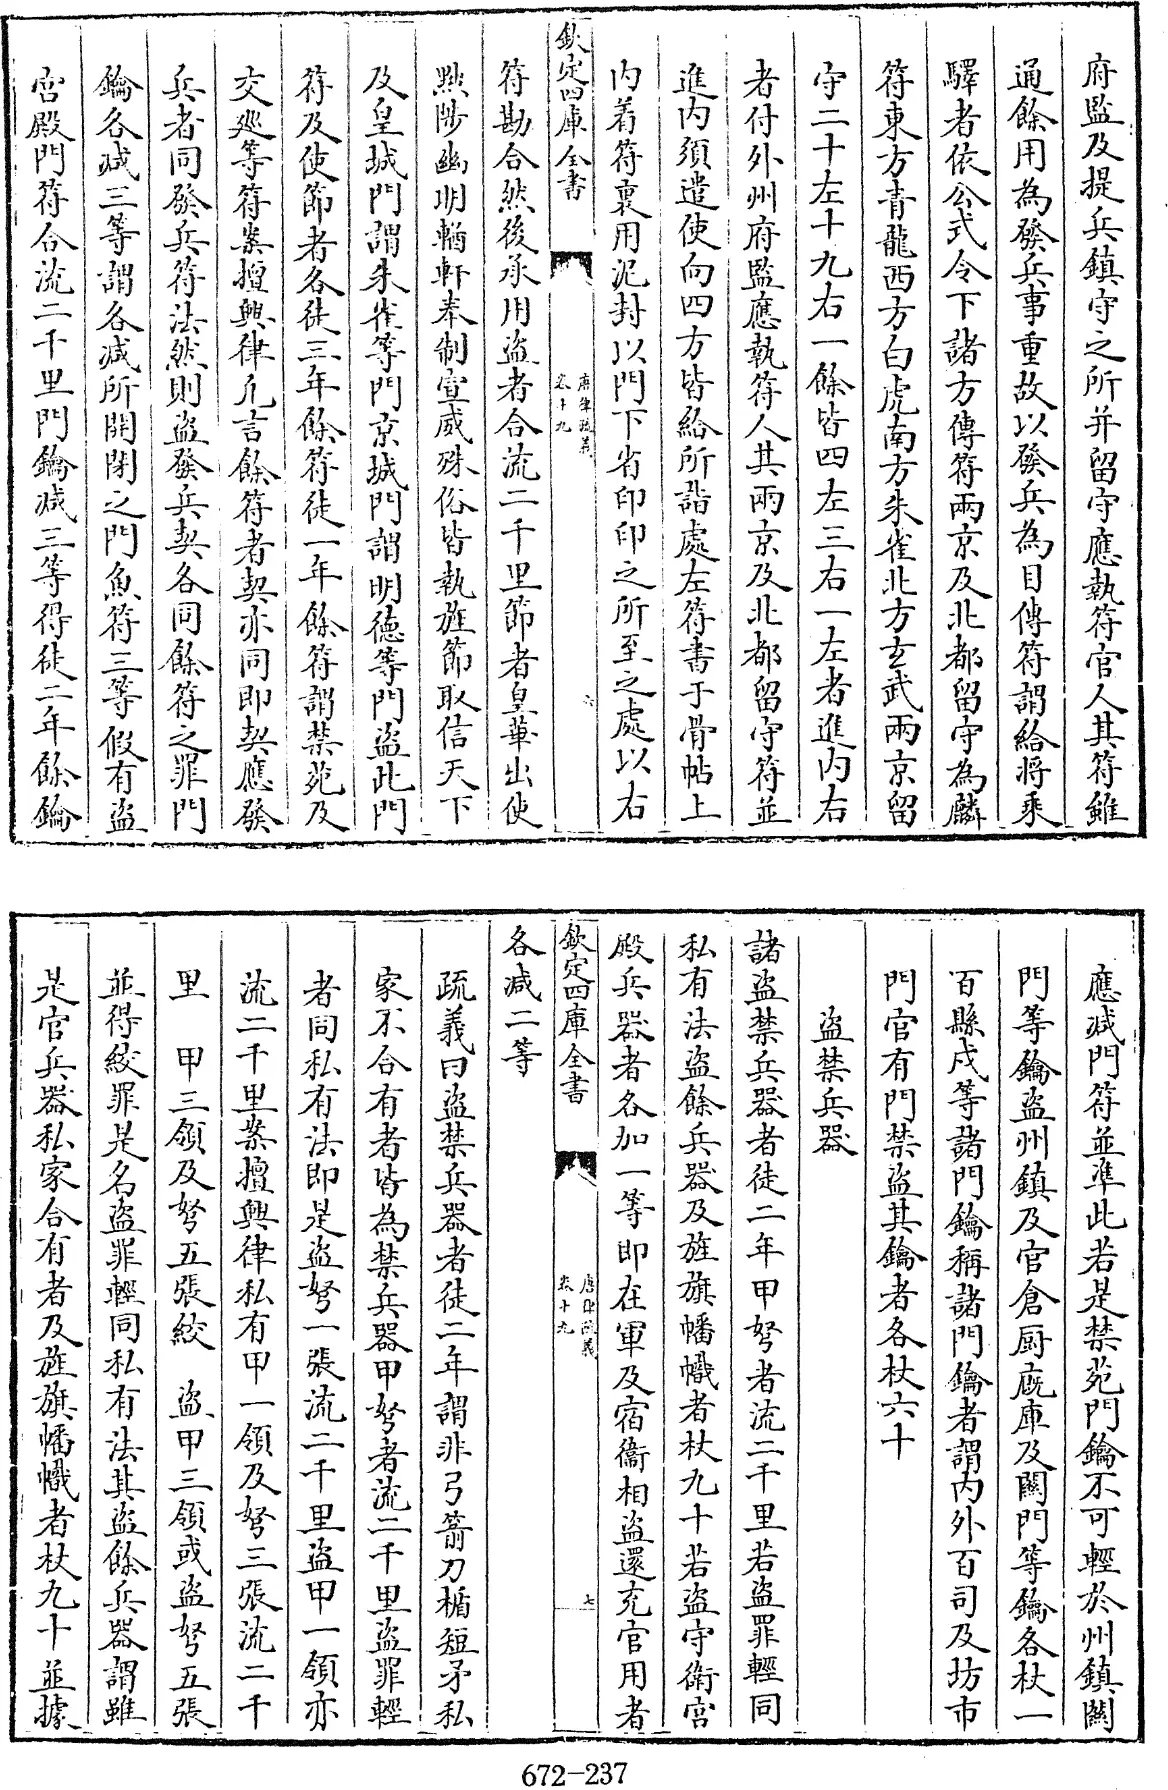 府監及提兵鎮守之所并留守應執符官人其符雖
通餘用為發兵事重故以發兵為目傳符謂給將乘
驛者依公式令下諸方傳符兩京及北都留守為麟
符東方青龍西方白虎南方朱雀北方玄武兩京留
守二十左十九右一餘皆四左三右一左者進内右
者付外州府監應執符人其兩京及北都留守符並
進内須遣使向四方皆給所詣處左符書于骨帖上
内着符裏用泥封以門下省印印之所至之處以右
欽定四庫全書
唐律疏義
卷十九
六
符勘合然後承用盜者合流二千里節者皇華出使
黜陟幽明輶軒奉制宣威殊俗皆執旌節取信天下
及皇城門謂朱雀等門京城門謂明德等門盜此門
符及使節者各徒三年餘符徒一年餘符謂禁苑及
交廵等符案擅興律凡言餘符者契亦同即契應發
兵者同發兵符法然則盜發兵契各同餘符之罪門
鑰各減三等謂各減所開閉之門魚符三等假有盜
宫殿門符合流二千里門鑰減三等得徒二年餘鑰
應減門符並準此若是禁苑門鑰不可輕於州鎮關
門等鑰盜州鎮及官倉厨廐庫及關門等鑰各杖一
百縣戍等諸門鑰稱諸門鑰者謂内外百司及坊市
門官有門禁盜其鑰者各杖六十
盜禁兵器
諸盜禁兵器者徒二年甲弩者流二千里若盜罪輕同
私有法盜餘兵器及旌旗幡幟者杖九十若盜守衛宫
殿兵器者各加一等即在軍及宿衞相盜還充官用者
欽定四庫全書
唐律疏義
卷十九
七
各減二等
疏義曰盜禁兵器者徒二年謂非弓箭刀楯短矛私
家不合有者皆為禁兵器甲弩者流二千里盜罪輕
者同私有法即是盜弩一張流二千里盜甲一領亦
流二千里案擅興律私有甲一領及弩三張流二千
里　甲三領及弩五張絞　盜甲三領或盜弩五張
並得絞罪是名盜罪輕同私有法其盜餘兵器謂雖
是官兵器私家合有者及旌旗幡幟者杖九十並據
672-237